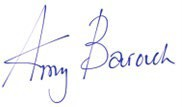 Amy Barouch